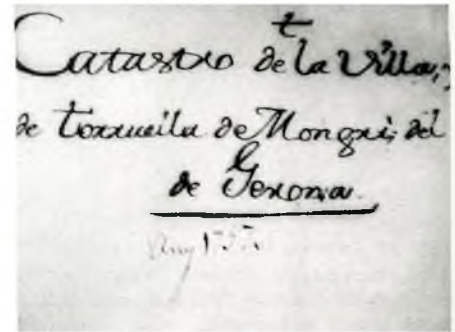 Catastro de la Villa,
de torruella de Mongri, del
de Gerona
Any